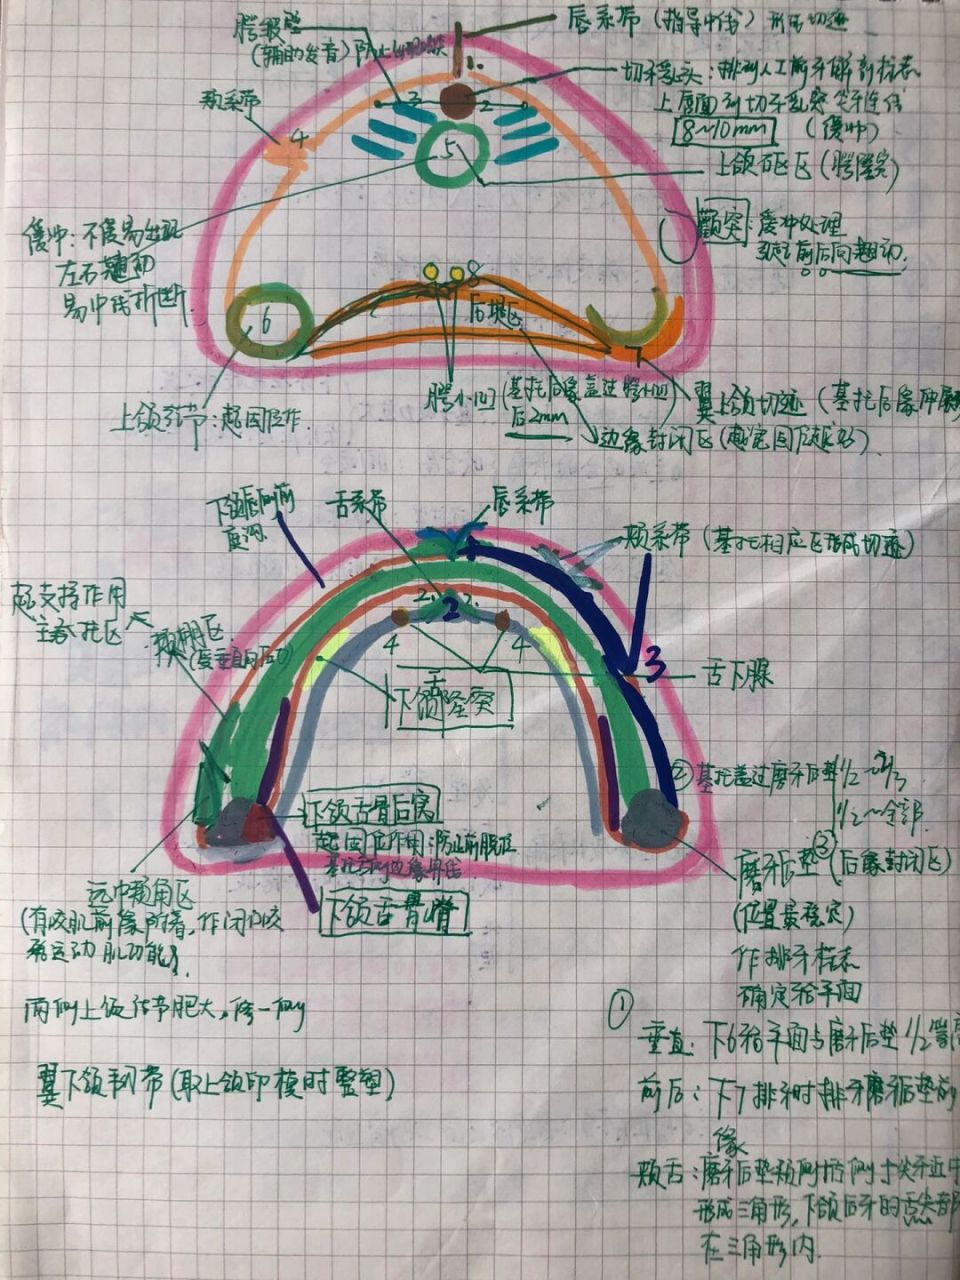 唇系带（指导中线）形成切迹
腭皱壁
（辅助发音）防止
切牙乳头：排列人工前牙解剖标志
上唇面到切牙乳突
8~10mm （缓冲）
颊系带
上颌硬区（腭隆突）
颧突：缓冲处理
前后向翘动.
缓冲：不
左右翘动
易中线折断
1.
2
3
4
5
6
7
8
后堤区
腭小凹（基托后缘盖过腭小凹
后2mm
翼上颌切迹（基托后缘伸展
边缘封闭区
上颌结节：起固位作.
舌系带
唇系带
颊系带（基托相应区形成切迹）
起支持作用
主承托区
颊棚区
（受垂直向压力）
2
2
3
4
4
舌下腺
舌
下颌隆突
②基托盖过磨牙后垫1/2~2/3
1/2~全部
下颌舌骨后窝
起固位作用：防止前脱位
磨牙后垫③（后缘封闭区）
（位置最稳定）
作排牙标志
确定𬌗平面
远中颊角区
（有咬肌前缘附着，作闭口咬
下颌舌骨嵴
两侧上颌结节肥大，修一侧
翼下颌韧带（取上颌印模时整塑）
①
垂直：下6𬌗平面与磨牙后垫1/2等高
前后：下7排牙时排牙磨牙后垫前
缘
颊舌：磨牙后垫颊侧舌侧与尖牙近中
形成三角形，下颌后牙的舌尖部
在三角形内.